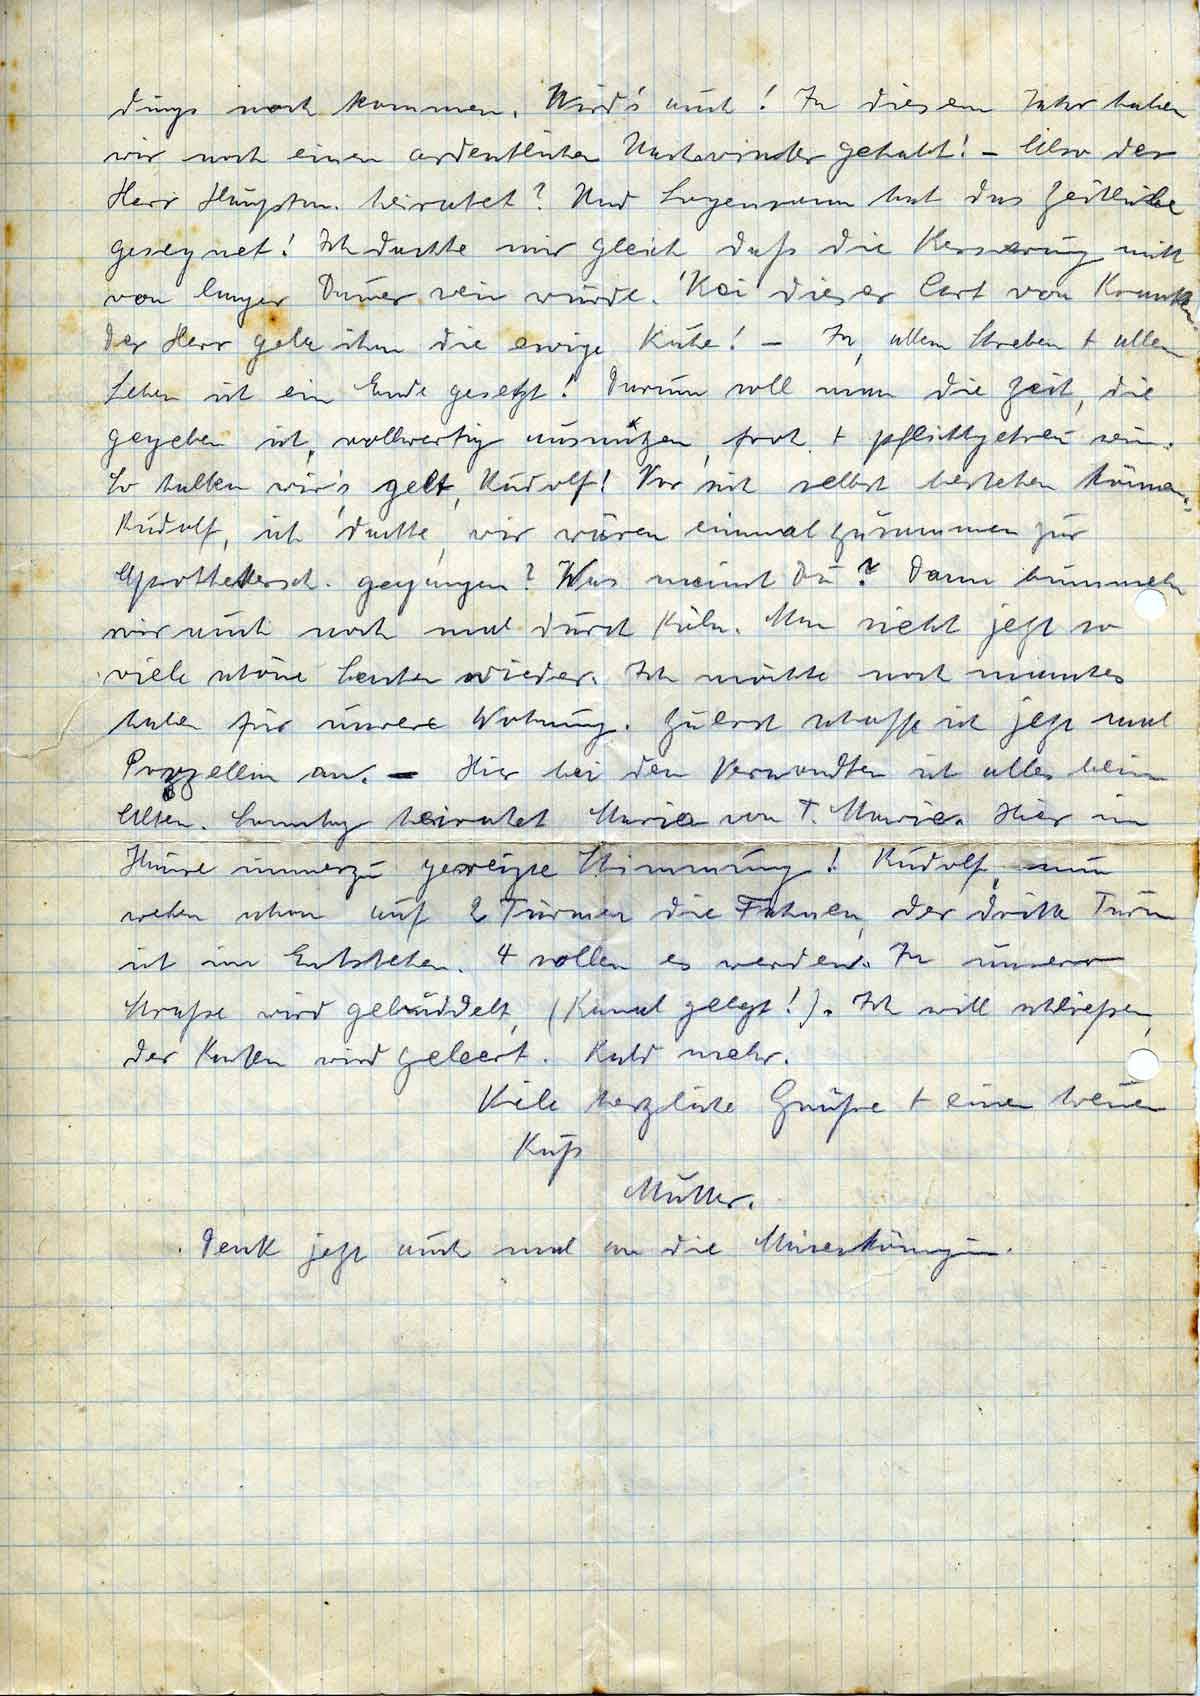 dings noch kommen. Wird's auch! In diesem Jahr haben
wir noch einen ordentlichen Nachwinter gehabt! – Also der
Herr Hauptm. heiratet? Und Logemann hat das Zeitliche
gesegnet! Ich dachte mir gleich daß die Besserung nicht
von langer Dauer sein würde. Bei dieser Art von Krankh.
Der Herr gebe ihm die ewige Ruhe! – Ja, allem Streben + allem
Leben ist ein Ende gesetzt! Darum soll man die Zeit, die
gegeben ist, vollwertig ausnützen, froh + pflichtgetreu sein.
So halten wir's gelt, Rudolf! Vor sich selbst bestehen können.
Rudolf, ich dachte, wir wären einmal zusammen zur
gegangen? Was meinst Du? Dann bummeln
wir auch noch mal durch Köln. Man sieht jetzt so
viele schöne Sachen wieder. Ich möchte noch manches
haben für unsere Wohnung. Zuerst schaffe ich jetzt mal
Porzellan an. – Hier bei den Verwandten ist alles beim
Alten. Samstag heiratet Maria von T. Marie. Hier im
Hause immerzu gereizte Stimmung! Rudolf, nun
wehen schon auf 2 Türmen die Fahnen, der dritte Turm
ist im Entstehen. 4 sollen es werden. In unserer
Straße wird gebuddelt, (Kanal gelegt!). Ich will schließen,
der Kasten wird geleert. Bald mehr.
Viele herzliche Grüße + einen lieben
Kuß
Mutter.
Denk jetzt auch mal an die Maienkönigin.